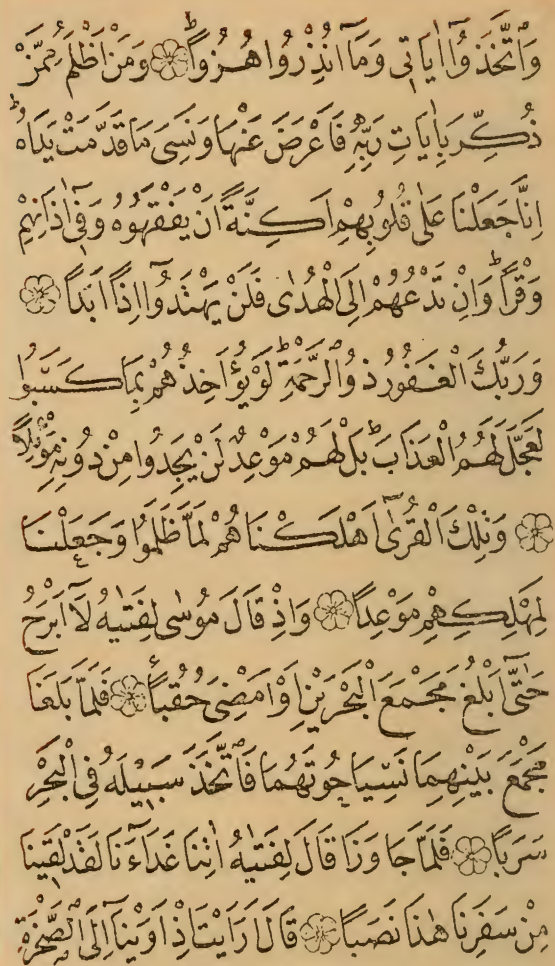 وَاتَّخَذُوٓا اٰيَاتِى وَمَآ اُنْذِرُوا هُزُوًاۜ ۞ وَمَنْ اَظْلَمُ مِمَّنْ
ذُكِّرَ بِاٰيَاتِ رَبِّهٖ فَاَعْرَضَ عَنْهَا وَنَسِىَ مَا قَدَّمَتْ يَدَاهُۜ
اِنَّا جَعَلْنَا عَلٰى قُلُوبِهِمْ اَكِنَّةً اَنْ يَفْقَهُوهُ وَفٖىٓ اٰذَانِهِمْ
وَقْرًاۜ وَاِنْ تَدْعُهُمْ اِلَى الْهُدٰى فَلَنْ يَهْتَدُوٓا اِذًا اَبَدًا ۞
وَرَبُّكَ الْغَفُورُ ذُو الرَّحْمَةِۜ لَوْ يُؤَاخِذُهُمْ بِمَا كَسَبُوا
لَعَجَّلَ لَهُمُ الْعَذَابَۜ بَلْ لَهُمْ مَوْعِدٌ لَنْ يَجِدُوا مِنْ دُونِهٖ مَوْئِلًا
۞ وَتِلْكَ الْقُرٰٓى اَهْلَكْنَاهُمْ لَمَّا ظَلَمُوا وَجَعَلْنَا
لِمَهْلِكِهِمْ مَوْعِدًا ۞ وَاِذْ قَالَ مُوسٰى لِفَتٰيهُ لَآ اَبْرَحُ
حَتّٰٓى اَبْلُغَ مَجْمَعَ الْبَحْرَيْنِ اَوْ اَمْضِىَ حُقُبًا ۞ فَلَمَّا بَلَغَا
مَجْمَعَ بَيْنِهِمَا نَسِيَا حُوتَهُمَا فَاتَّخَذَ سَبٖيلَهُ فِى الْبَحْرِ
سَرَبًا ۞ فَلَمَّا جَاوَزَا قَالَ لِفَتٰيهُ اٰتِنَا غَدَآءَنَا لَقَدْ لَقٖينَا
مِنْ سَفَرِنَا هٰذَا نَصَبًا ۞ قَالَ اَرَاَيْتَ اِذْ اَوَيْنَآ اِلَى الصَّخْرَةِ